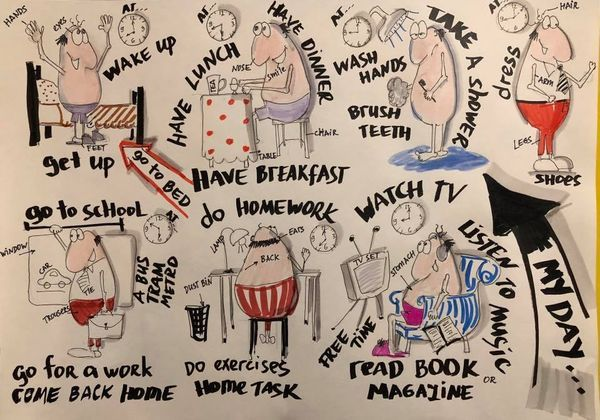 HANDS
EYES
AT...
WAKE UP
FEET
get up
GO TO BED
AT...
HAVE LUNCH
HAVE DINNER
NOSE
Smile
CHAIR
TABLE
HAVE BREAKFAST
AT...
WASH
HANDS
BRUSH
TEETH
TAKE A SHOWER
AT...
HAIR
dress
LEGS
SHOES
go to SCHOOL
AT...
WINDOW
CAR
TIE
TROUGERS
A BUS
TEAM
METRO
GO FOR a WORK
COME BACK HOME
do HOMEWORK
LAMP
EATS
BACK
DUST BIN
DO exercises
Home TASK
WATCH TV
TV SET
STOMACH
LISTEN TO MUSIC
FREE TIME
read BOOK
OR
MAGAZINE
MY DAY...